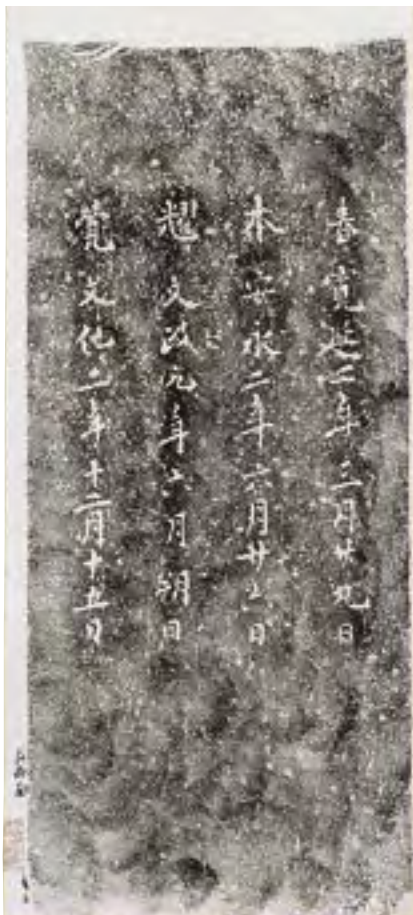 春 寛延二年三月廿九日
本 安永二年六月廿六日
超 文政元年六月朔日
覚 文化二年十二月十五日